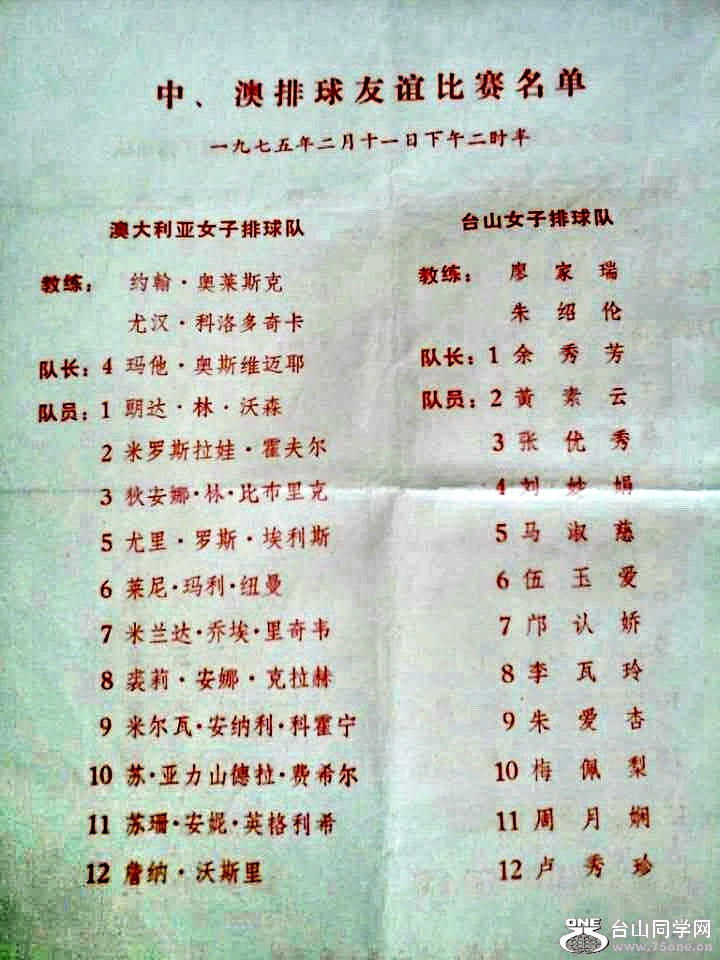 中、澳排球友谊比赛名单
一九七五年二月十一日下午二时半
澳大利亚女子排球队
教练： 约翰·奥莱斯克
尤汉·科洛多奇卡
队长：4 玛他·奥斯维迈耶
队员：1 明达·林·沃森
2 米罗斯拉娃·霍夫尔
3 狄安娜·林·比布里克
5 尤里·罗斯·埃利斯
6 莱尼·玛利·纽曼
7 米兰达·乔埃·里奇韦
8 裘莉·安娜·克拉赫
9 米尔瓦·安纳利·科霍宁
10 苏·亚力山德拉·费希尔
11 苏珊·安妮·英格利希
12 詹纳·沃斯里
台山女子排球队
教练： 廖家瑞
朱绍伦
队长：1 余秀芳
队员：2 黄素云
3 张优秀
4 刘妙娟
5 马淑慈
6 伍玉爱
7 邝认娇
8 李瓦玲
9 朱爱杏
10 梅佩梨
11 周月娴
12 卢秀珍
ONE 台山同学网
www.75one.cn